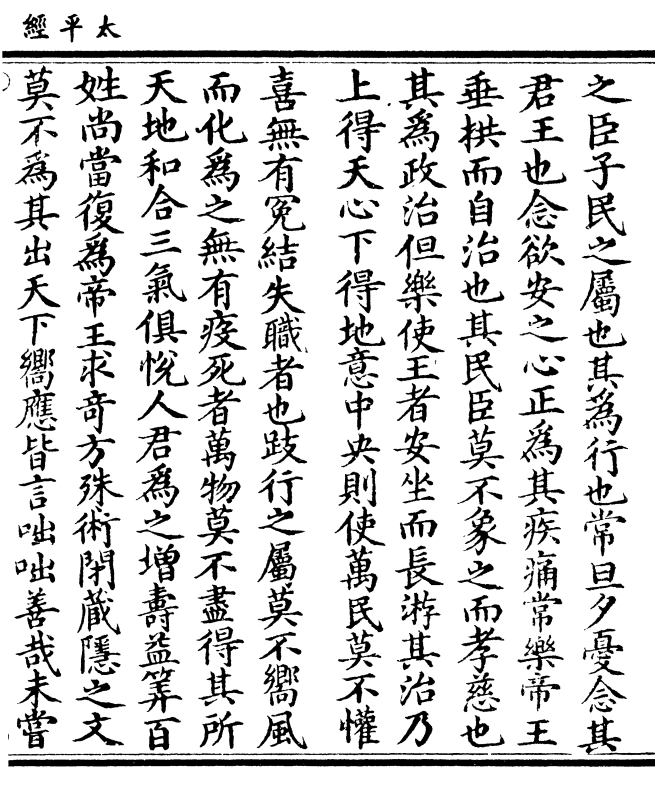 太平經
之臣子民之屬也其為行也常旦夕憂念其
君王也念欲安之心正為其疾痛常樂帝王
垂栱而自治也其民臣莫不象之而孝慈也
其為政治但樂使王者安坐而長游其治乃
上得天心下得地意中央則使萬民莫不懽
喜無有冤結失職者也跂行之屬莫不嚮風
而化為之無有疫死者萬物莫不盡得其所
天地和合三氣俱悅人君為之增壽益筭百
姓尚當復為帝王求奇方殊術閉藏隱之文
莫不為其出天下嚮應皆言咄咄善哉未嘗